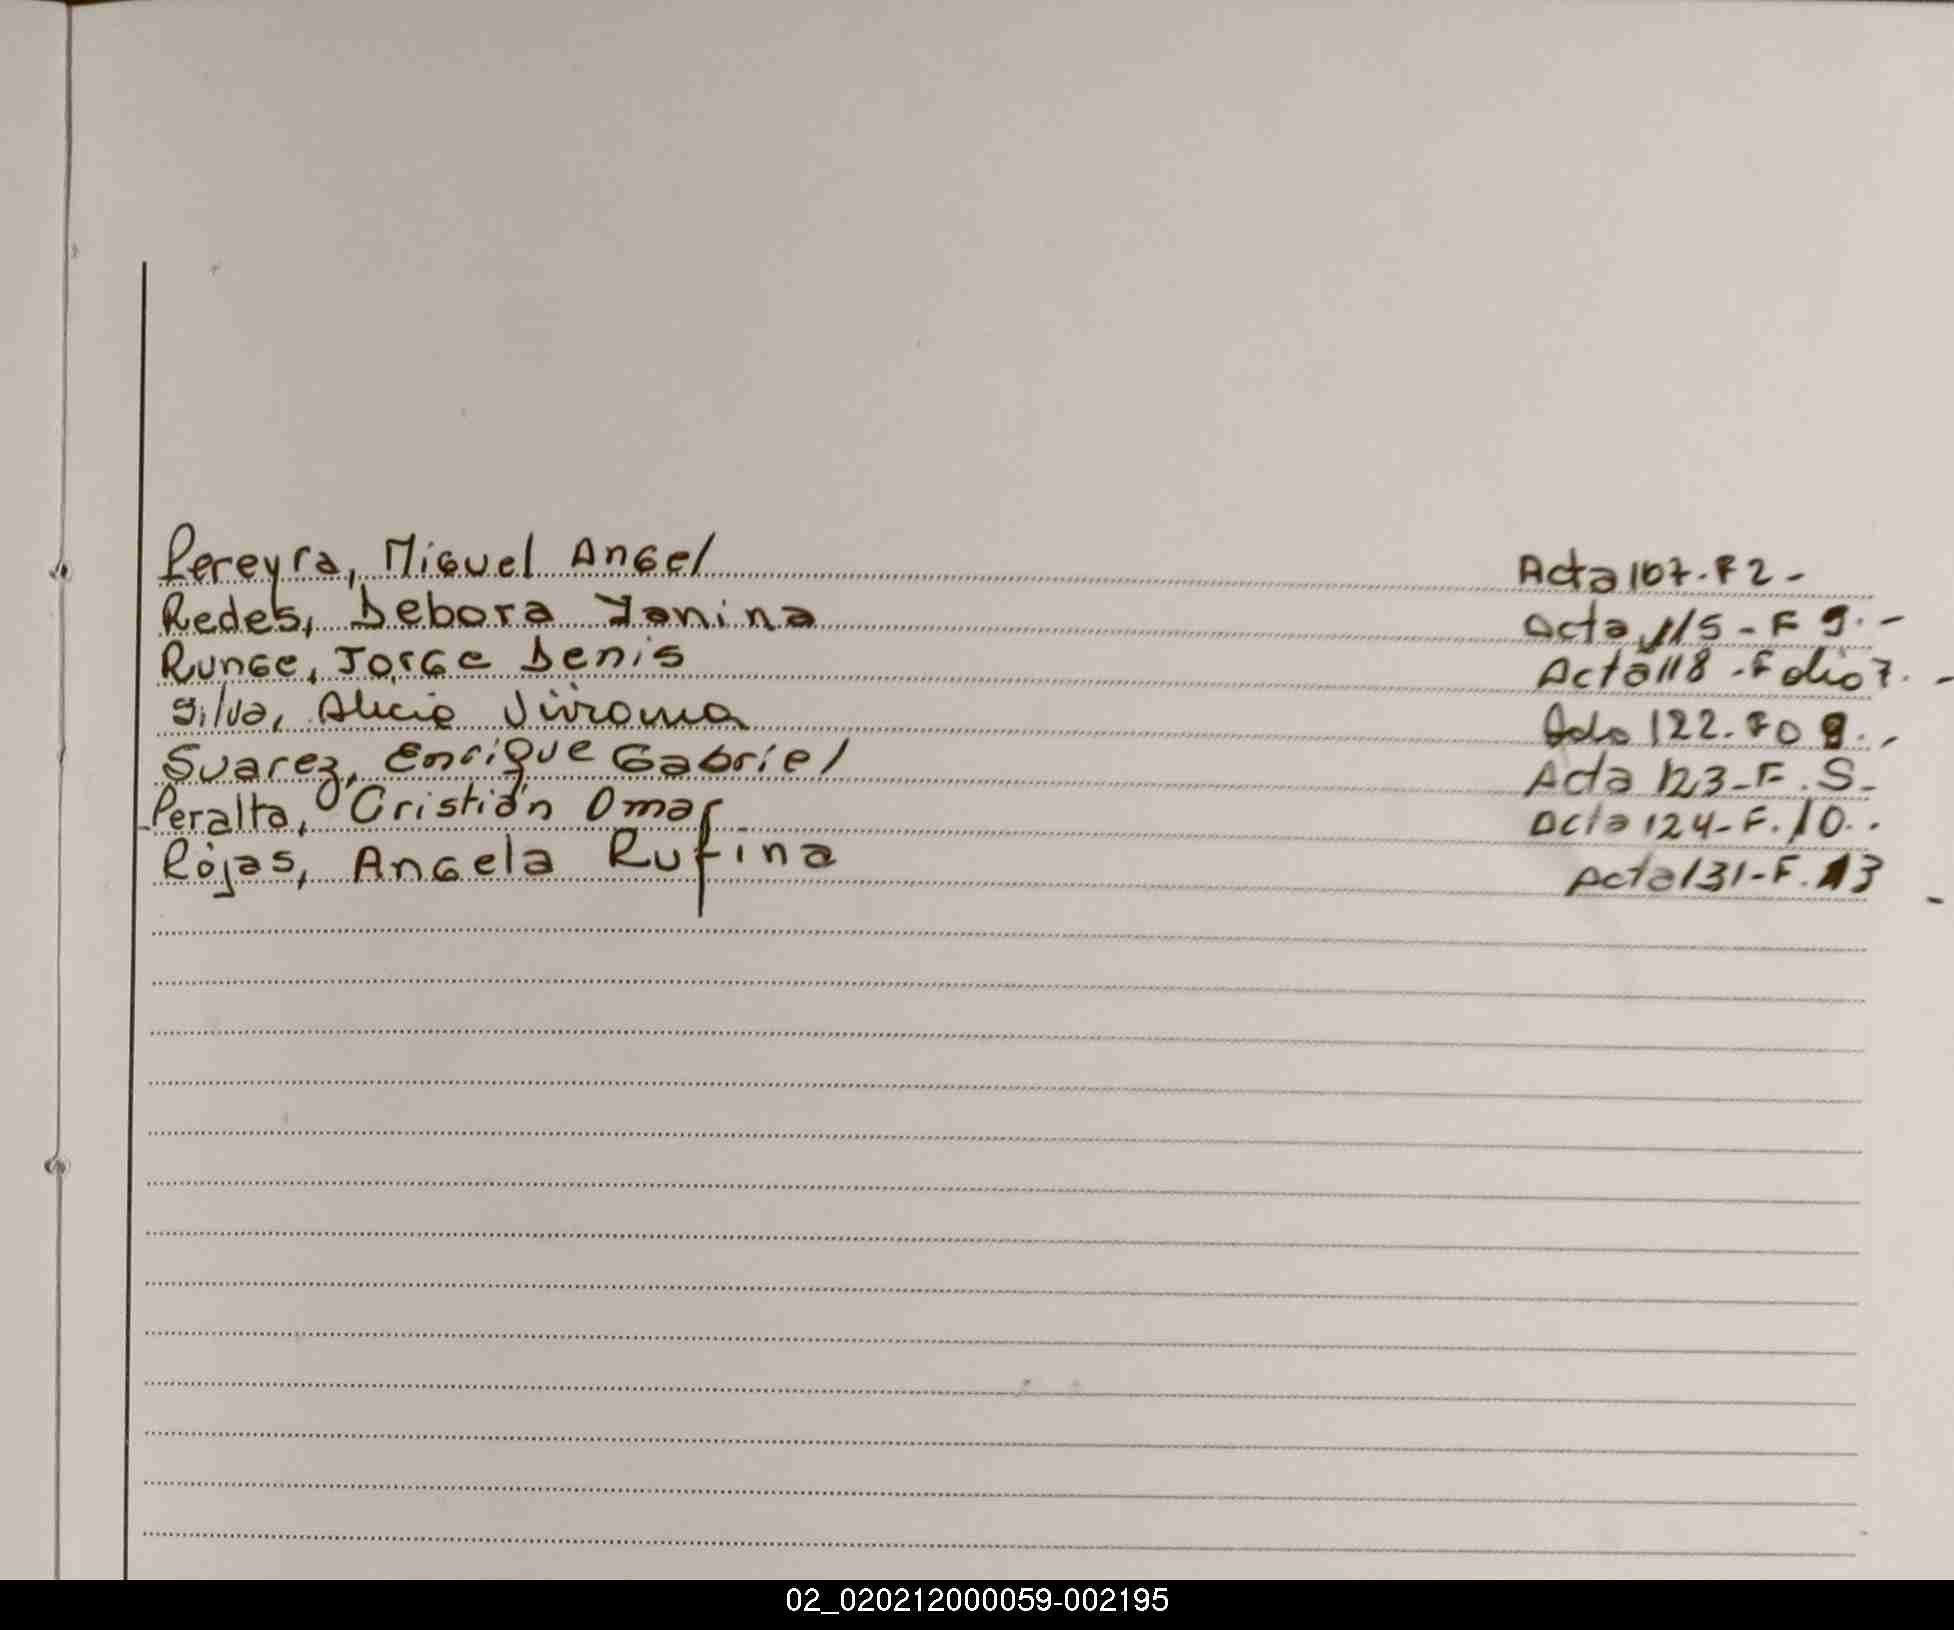 Pereyra, Miguel Angel Acta 107.F2-
Redes, Debora Yanina Acta 115-F 9.-
Runge, Jorge Denis Acta 118-Folio 7.-
Silva, Alicia Viviana 122.
Suarez, Enrique Gabriel Acta 123-F.
-Peralta, Cristián Omar Acta 124-F.10..
Rojas, Angela Rufina Acta 131-F.13-
02_020212000059-002195